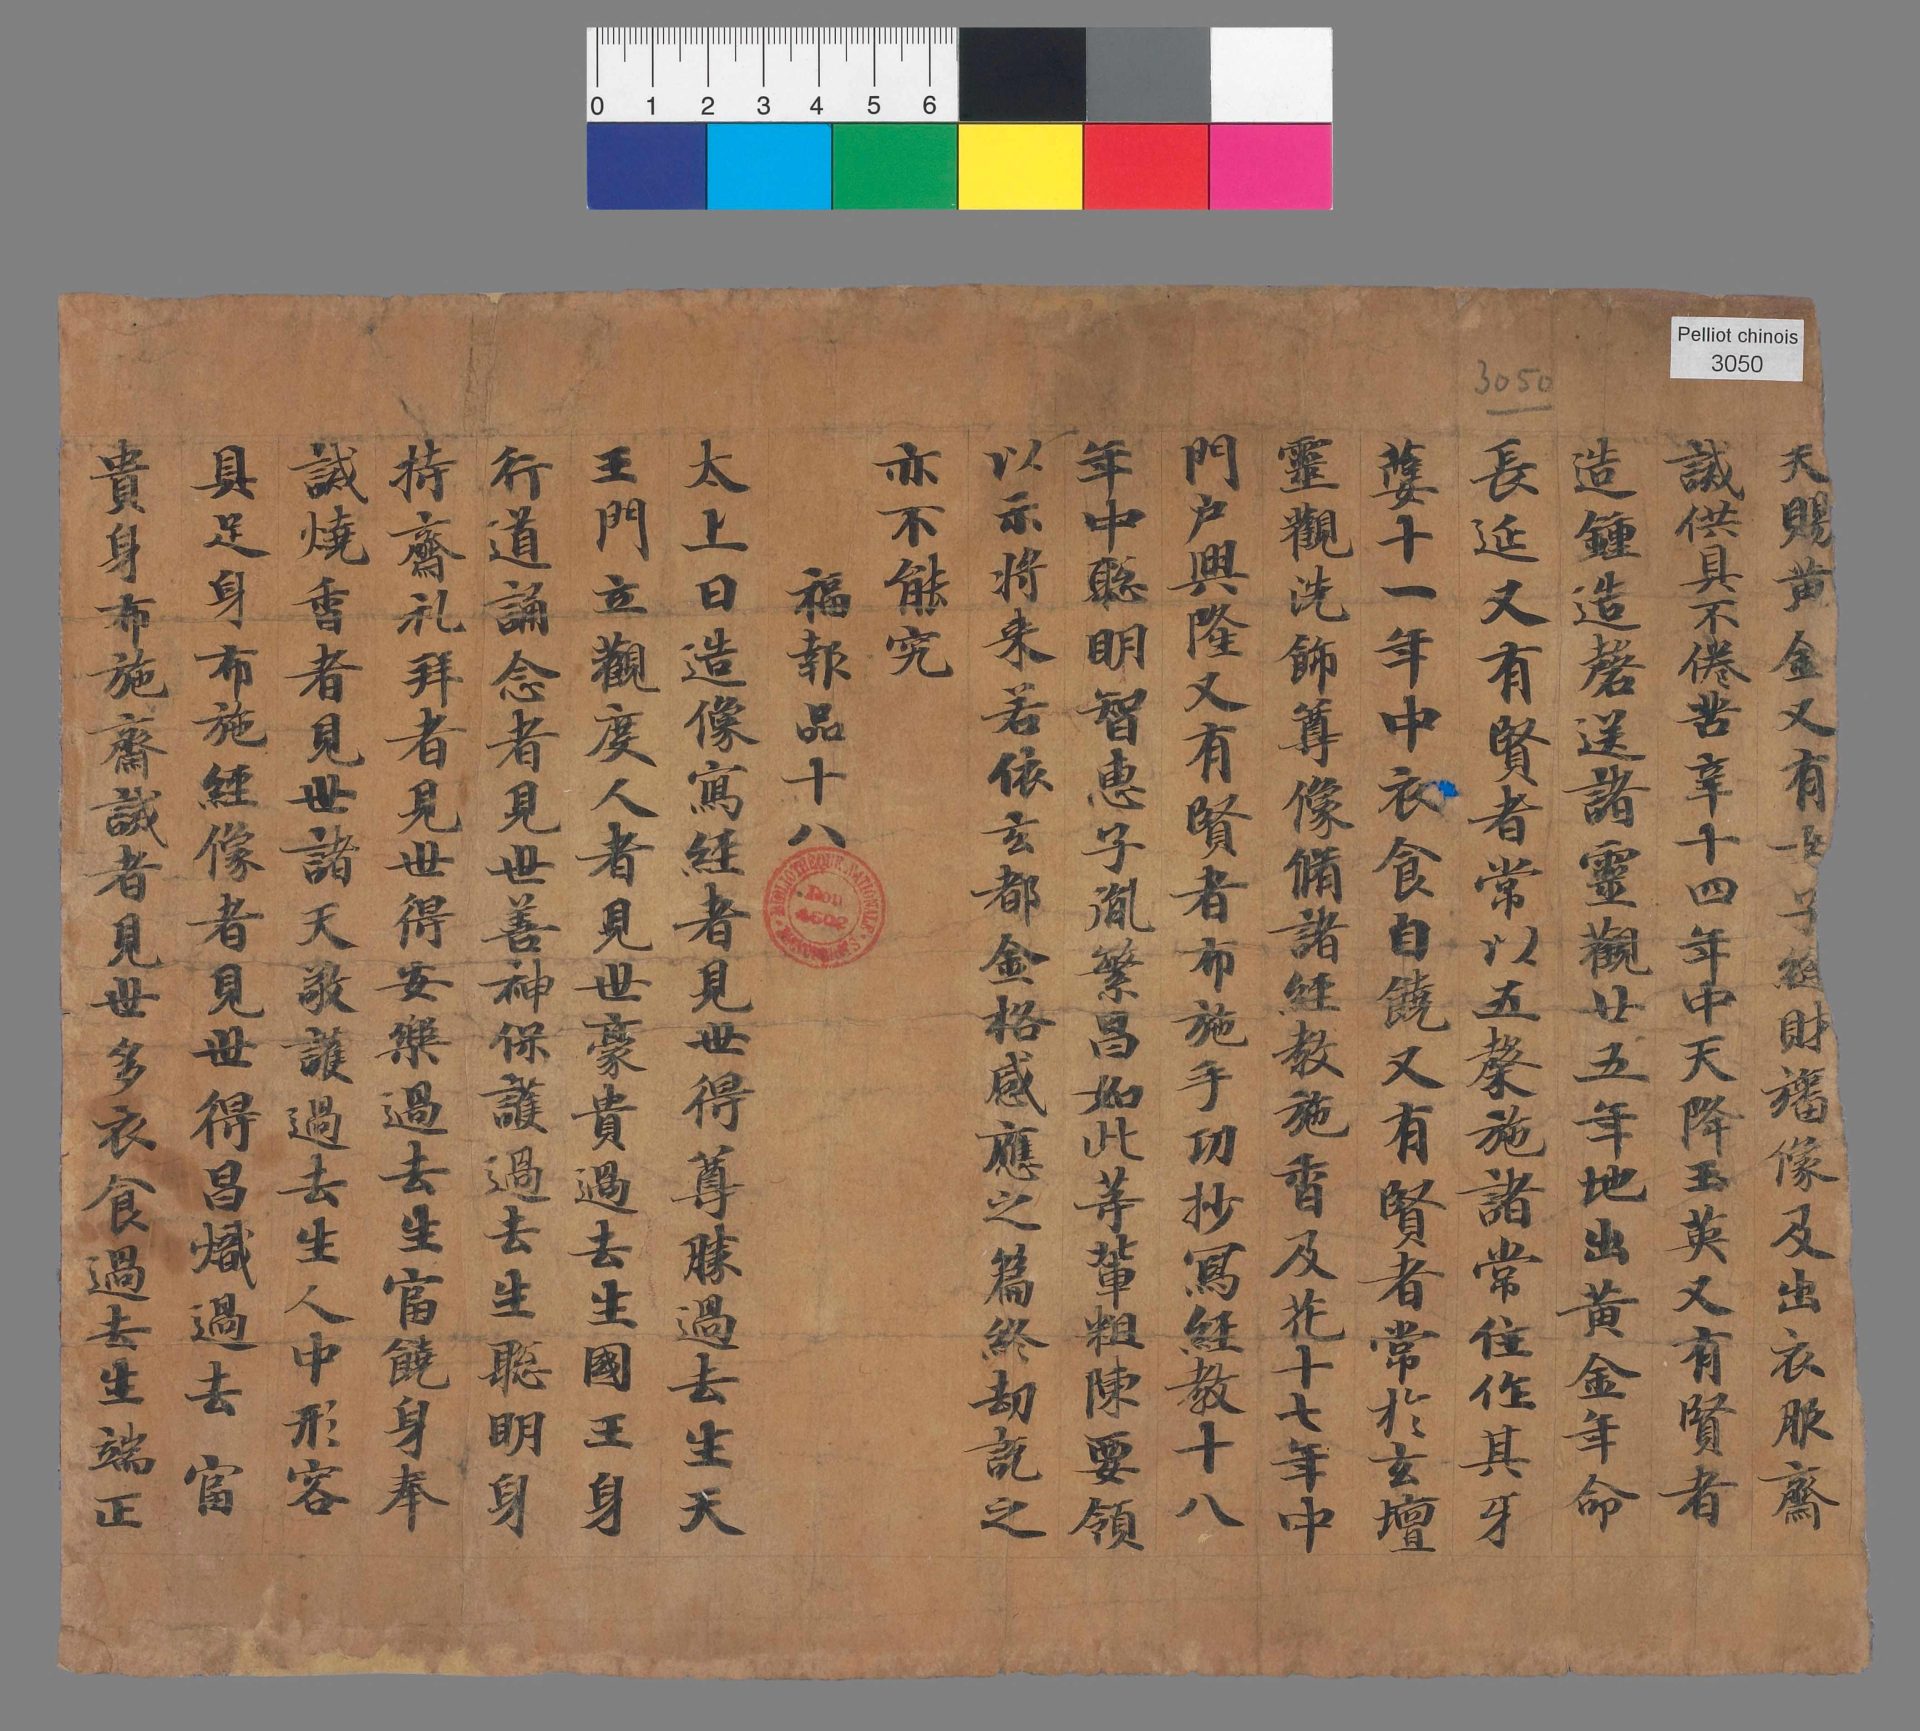 0 1 2 3 4 5 6
Pelliot chinois
3050
3050
天賜黄金又有女子絵財旛像及出衣服齋
誠供具不倦苦辛十四年中天降玉英又有賢者
造鍾造磬送諸靈觀廿五年地出黄金年命
長延又有賢者常以五槃施諸常住作其牙
蔞十一年中衣食自饒又有賢者常於玄壇
靈觀洗飾尊像脩諸經教施香及花十七年中
門户興隆又有賢者布施手功抄寫經教十八
年中聡明智恵子胤繁昌如此等輩粗陳要領
以示將来若依玄都金格感應之篇終劫説之
亦不能究
福報品十八
太上曰造像寫經者見世得尊勝過去生天
王門立觀度人者見世豪貴過去生國王身
行道誦念者見世善神保護過去生聡明身
持齋礼拜者見世得安樂過去生富饒身奉
誡燒香者見世諸天敬護過去生人中形容
具足身布施經像者見世得昌熾過去富
貴身布施齋誠者見世多衣食過去生端正